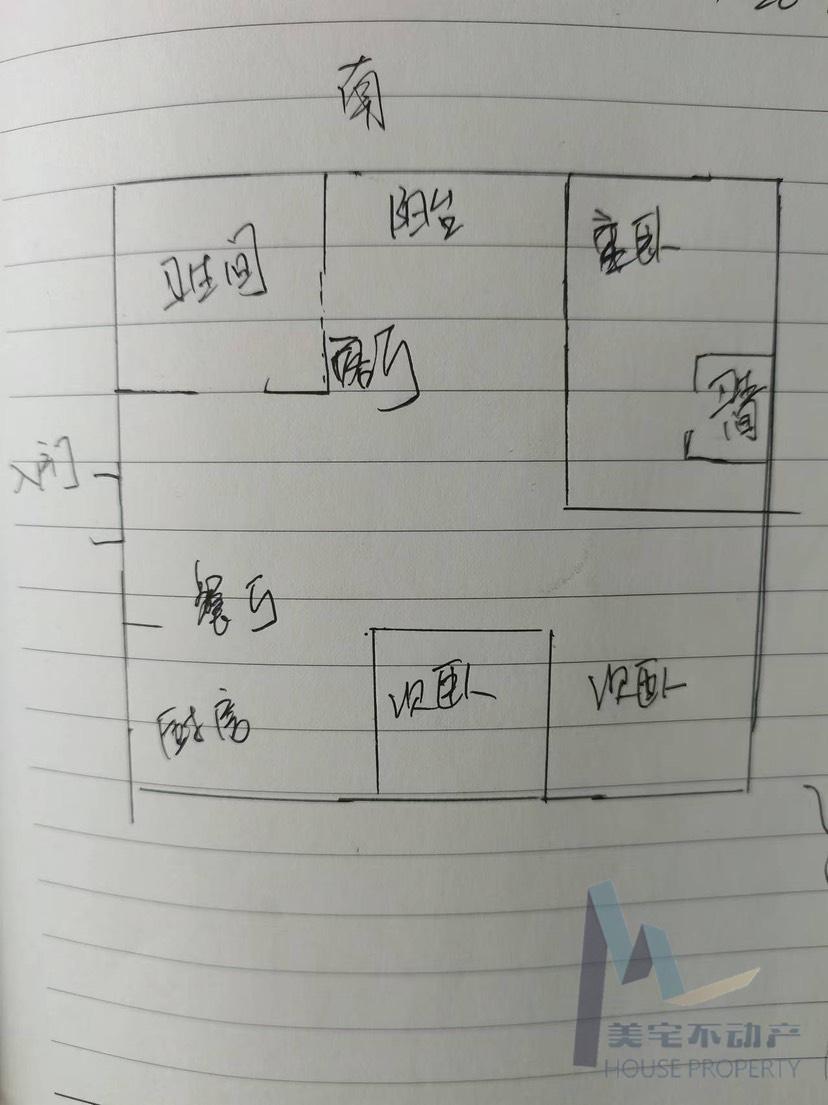 南
阳台
主卧
卫生间
客厅
卫生间
入门
餐厅
次卧
次卧
厨房
美宅不动产
HOUSE PROPERTY